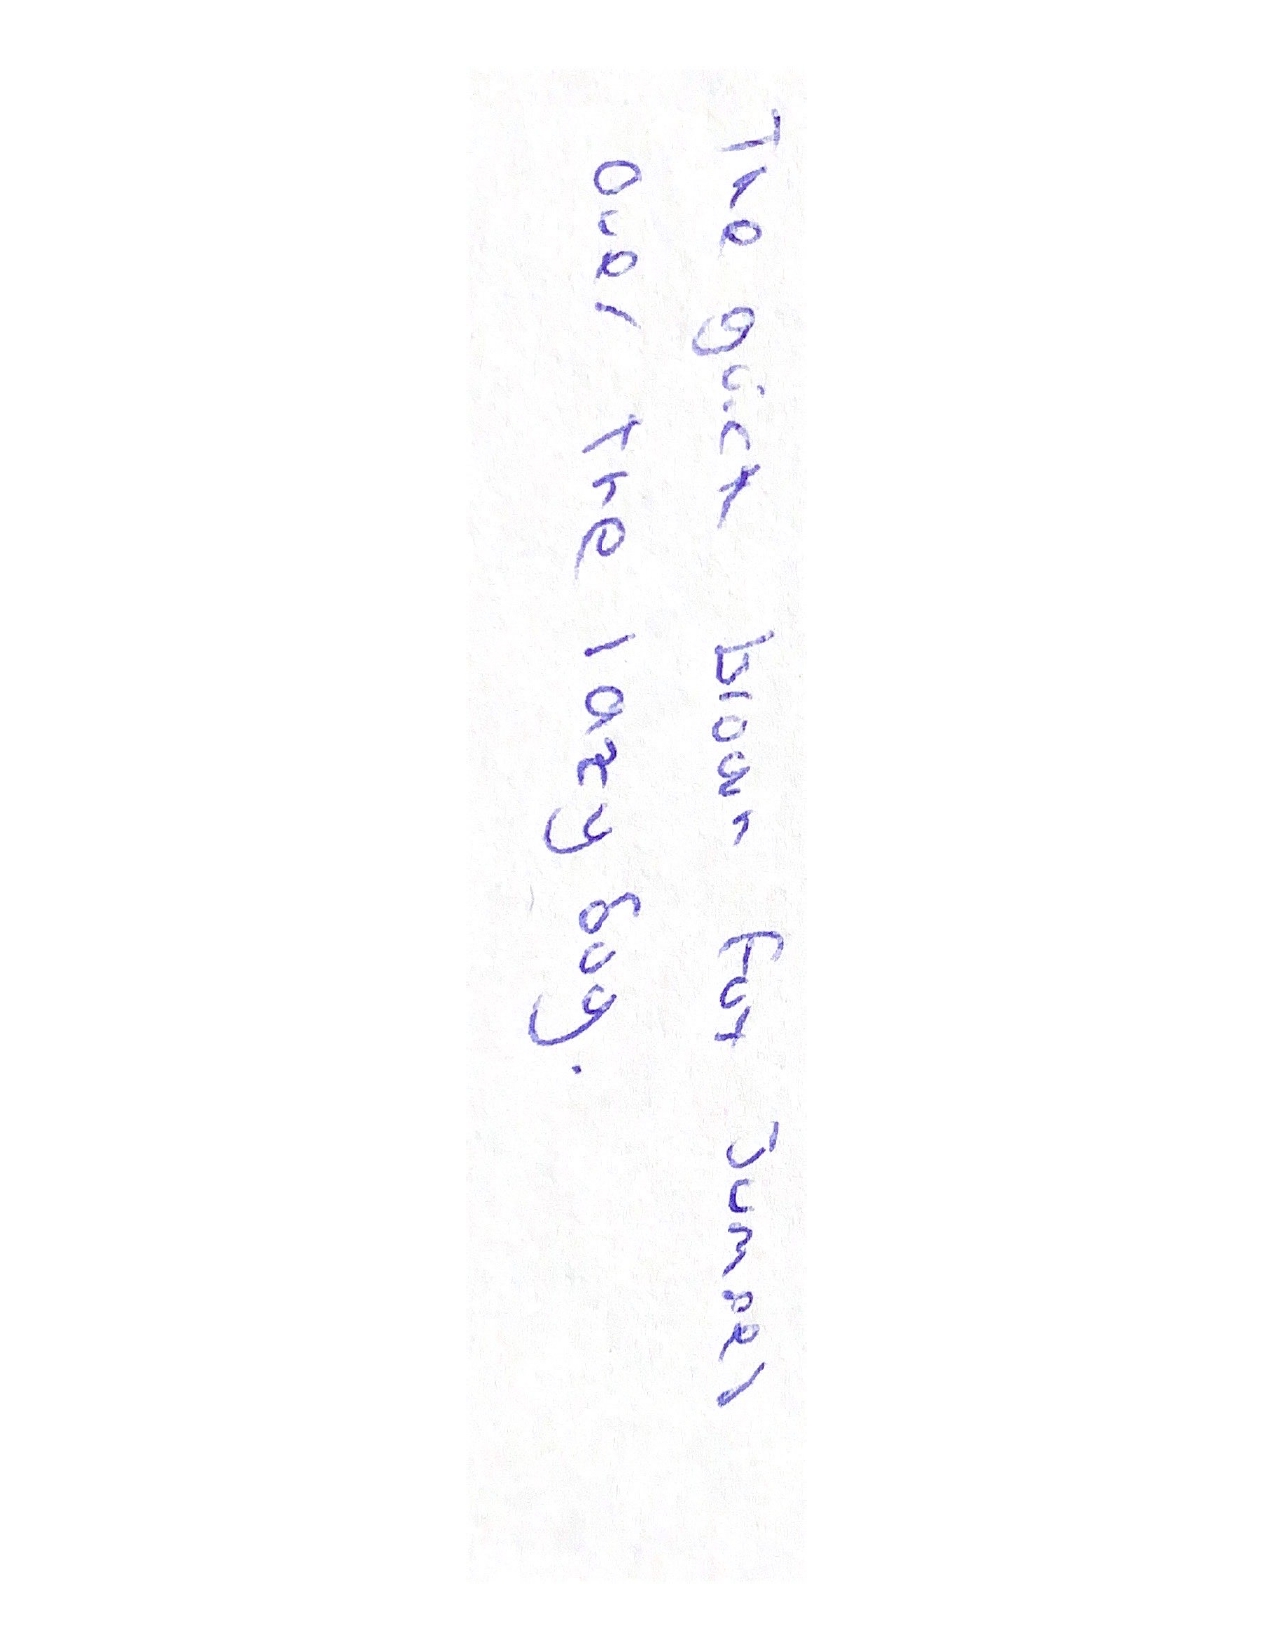 The quick brown Fox
over the lazy dog.